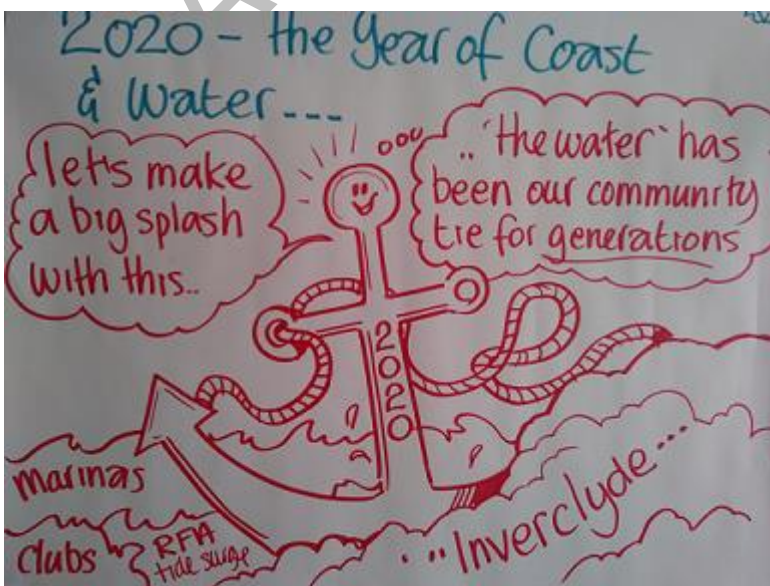 2020 - the Year of Coast
& Water...
let's make
a big splash
with this..
.. 'the water' has
been our community
tie for generations
2020
marinas
Clubs
RFA
tide surge
..."Inverclyde...